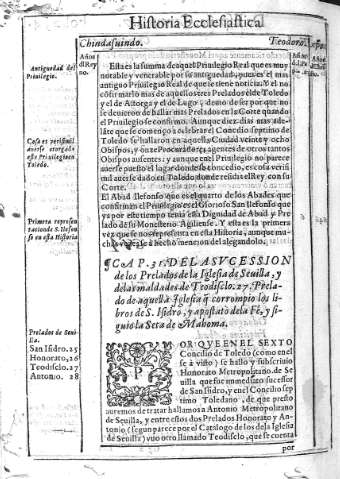 Historia Ecclesiastical
Chindasuindo.
Teodoro.
Años
del Rey
no.
Antiguedad del
Priuilegio.
Esta es la summa de aquel Priuilegio Real que es muy
notable y venerable por su antiguedad, pues es el mas
antiguo Priuilegio Real de que se tiene noticia. Y el
confirmarlo mas de aquellos tres Prelados el de Toledo
y el de Astorga y el de Lugo, deuio de ser por que no
se deuieron de hallar mas Prelados en la Corte quando
el Priuilegio se confirmo. Aunque diez dias mas ade-
late que se començo a celebrar el Concilio septimo de
Toledo se hallaron en aquella Ciudad veinte y ocho
Obispos, y onze Procuradores, agentes de otros tantos
Obispos ausentes: y aunque en el Priuilegio no parece
auerse puesto el lugar donde se concedio, es cosa verisi
mil auerse dado en Toledo donde residia el Rey con su
Corte.
Cosa es verisimil
auerse otorgado
este Priuilegio en
Toledo.
El Abad Ilefonso que es el quarto de los Abades que
confirman el Priuilegio es el Glorioso San Ilefonso que
ya por este tiempo tenia esta Dignidad de Abad y Pre
lado de su Monesterio Agiliense. Y esta es la primera
vez que se nos representa en esta Historia, aunque mu-
cho antes se a hecho mencion del alegandolo.
Primera represen
tacion de S. Ilefon
so en esta Historia
CAP. 31. DE LA SVCESSION
de los Prelados de la Iglesia de Seuilla, y
de las maldades de Teodisclo. 27. Prela-
do de aquella Iglesia q̃ corrompio los li-
bros de S. Isidro, y apostato de la Fè, y si-
guio la Seta de Mahoma.
Prelados de Seui-
lla.
San Isidro. 25
Honorato, 26
Teodisclo. 27
Antonio. 28
POR QVE EN EL SEXTO
Concilio de Toledo (como en el
se à visto) se hallo y subscriuio
Honorato Metropolitano de Se
uilla que fue immediato sucessor
de San Isidro, y en el Concilio sep
timo Toledano, de que presto
auremos de tratar hallamos a Antonio Metropolitano
de Seuilla, y entre estos dos Prelados Honorato y An-
tonio (segun parece por el Catalogo de los de la Iglesia
de Seuilla) vuo otro llamado Teodisclo, que se cuenta
por